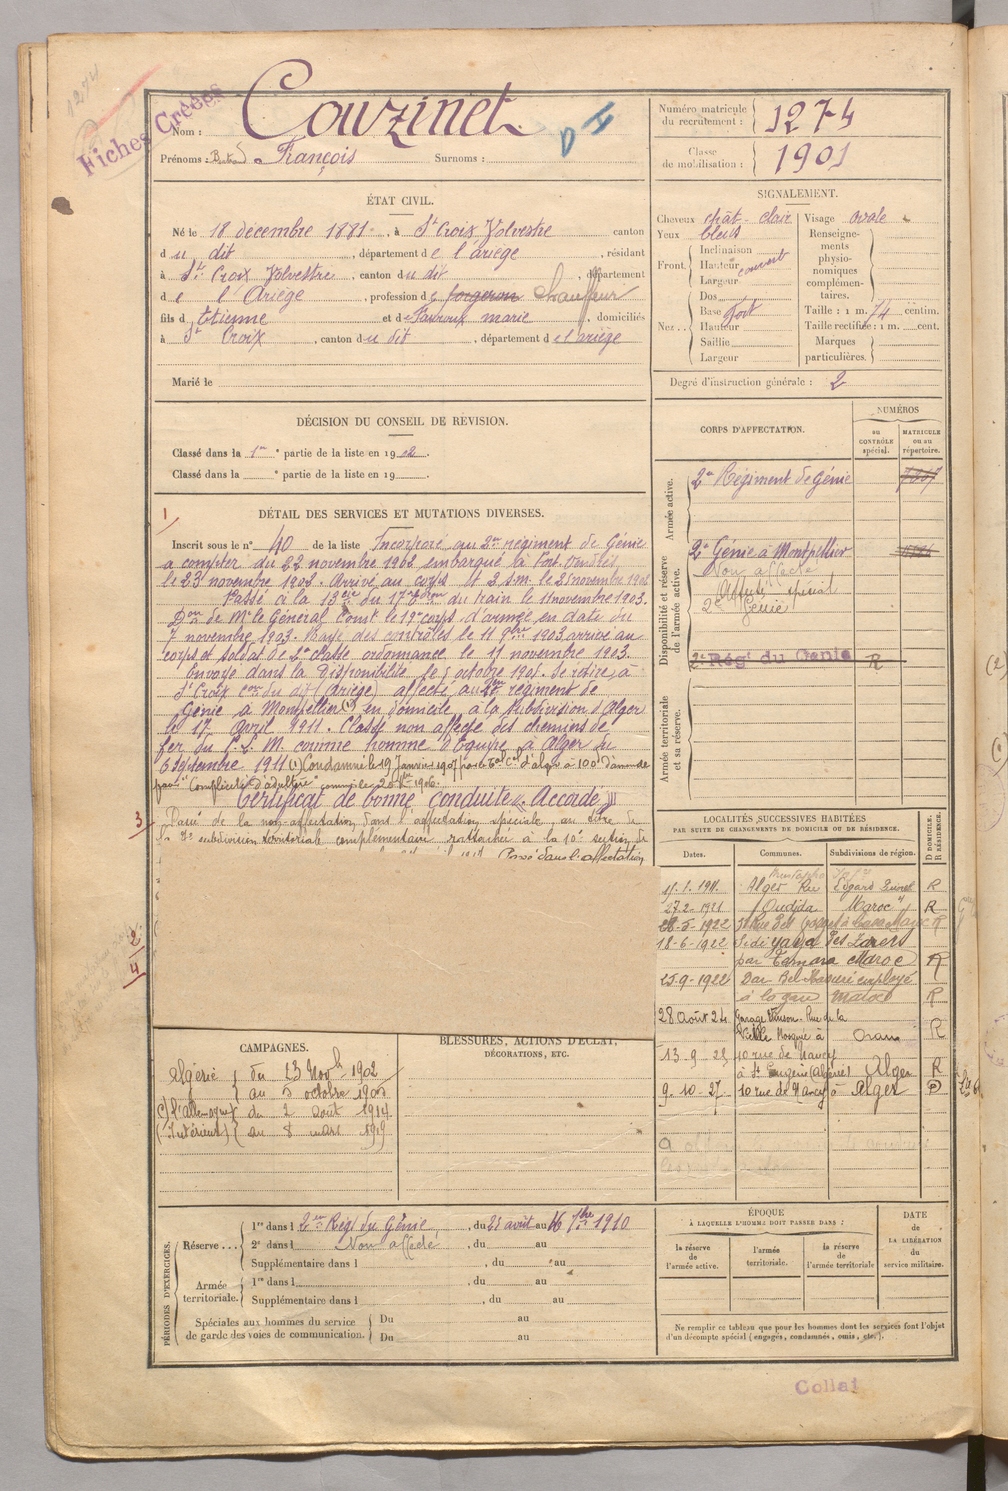 1274
Fiches Créées
Couzinet
Nom :
Prénoms : Bertrand François Surnoms :
Numéro matricule du recrutement : 1274
Classe de mobilisation : 1901
ÉTAT CIVIL.
Né le 18 décembre 1881, à St Croix Volvestre canton
du dit, département de l'ariège, résidant
à Ste Croix Volvestre, canton du dit, département
de l'Ariège, profession de forgeron Chauffeur
fils d'Etienne et de Fauroux marie, domiciliés
à St Croix, canton du dit, département de l'ariège
Marié le
SIGNALEMENT.
Cheveux chât-clair
Yeux bleus
Front. Inclinaison
Hauteur couvert
Largeur
Nez. Dos
Base fort
Hauteur
Saillie
Largeur
Visage ovale
Renseignements physionomiques complémentaires.
Taille : 1 m. 74 centim.
Taille rectifiée : 1 m. cent.
Marques particulières.
Degré d'instruction générale : 2
DÉCISION DU CONSEIL DE RÉVISION.
Classé dans la 1re partie de la liste en 1902.
Classé dans la e partie de la liste en 19
CORPS D'AFFECTATION.
NUMÉROS
au CONTRÔLE spécial.
MATRICULE ou au répertoire.
Armée active.
2e Régiment de Génie
Disponibilité et réserve de l'armée active.
2e Génie à Montpellier
Non affecté
Affecté spécial
2e Génie
2e Régt du Genie R
Armée territoriale et sa réserve.
1
DÉTAIL DES SERVICES ET MUTATIONS DIVERSES.
Inscrit sous le n° 40 de la liste Incorporé au 2e régiment de Génie
à compter du 22 novembre 1902 embarqué à Port-Vendres
le 23 novembre 1902. Arrivé au corps et 2 s.m. le 25 novembre 1902
Passé à la 13e Cie du 17e Eron du train le 11 novembre 1903.
Don de Mr le Général Comt le 19e corps d'armée en date du
7 novembre 1903. Rayé des contrôles le 11 9bre 1903 arrivé au
corps et soldat de 2e classe ordonnance le 11 novembre 1903.
Envoyé dans la disponibilité le 5 octobre 1905. Se retire à
St Croix con du dit (Ariège) affecté au 2e régiment de
Génie à Montpellier (1) en domicile, à la subdivision d'Alger
le 17 avril 1911. Classé non affecté des chemins de
fer du P.L.M. comme homme d'équipe à Alger du
6 septembre 1911 (1) Condamné le 19 janvier 1907 par le d'alger à 100f d'amende
pour "Complicité d'adultère" commis le 1906.
Certificat de bonne conduite "Accordé"
3
Passé de la non-affectation dans l'affectation spéciale, au titre de
la 7e subdivision territoriale complémentaire rattachée à la 10e section de
Passé dans l'affectation
2
4
LOCALITÉS SUCCESSIVES HABITÉES
PAR SUITE DE CHANGEMENTS DE DOMICILE OU DE RÉSIDENCE.
D DOMICILE. R RÉSIDENCE.
Dates. Communes. Subdivisions de région.
11.1.1911. Alger Rue Edgard Quinet R
27.2.1921 Oudjda Maroc R
28-5-1922 R
18-6-1922 Sidi yaya des Zaers
par Temara Maroc R
25-9-1922 Dar Bel Hamri employé
à la gare Maroc R
28 août 24 Garage Vinson. Rue de la
Vieille Mosquée à Oran R
13-9-25 10 rue de Nancy
à St Eugène (Algérie) Alger R
9-10-27. 10 rue de Nancy à Alger D
CAMPAGNES.
Algérie du 23 Novbre 1902
au 5 octobre 1905
C/ l'allemagne du 2 août 1914
(Intérieur) au 8 mars 1919
BLESSURES, ACTIONS D'ÉCLAT,
DÉCORATIONS, ETC.
PÉRIODES D'EXERCICES.
Réserve... 1re dans l 2e Régt du Génie, du 25 août au 16 7bre 1910
2e dans l Non affecté, du au
Supplémentaire dans l , du au
Armée territoriale. 1re dans l , du au
Supplémentaire dans l , du au
Spéciales aux hommes du service de garde des voies de communication. Du au
Du au
ÉPOQUE
À LAQUELLE L'HOMME DOIT PASSER DANS :
la réserve de l'armée active.
l'armée territoriale.
la réserve de l'armée territoriale
DATE de LA LIBÉRATION du service militaire.
Ne remplir ce tableau que pour les hommes dont les services font l'objet
d'un décompte spécial (engagés, condamnés, omis, etc.).
Collat